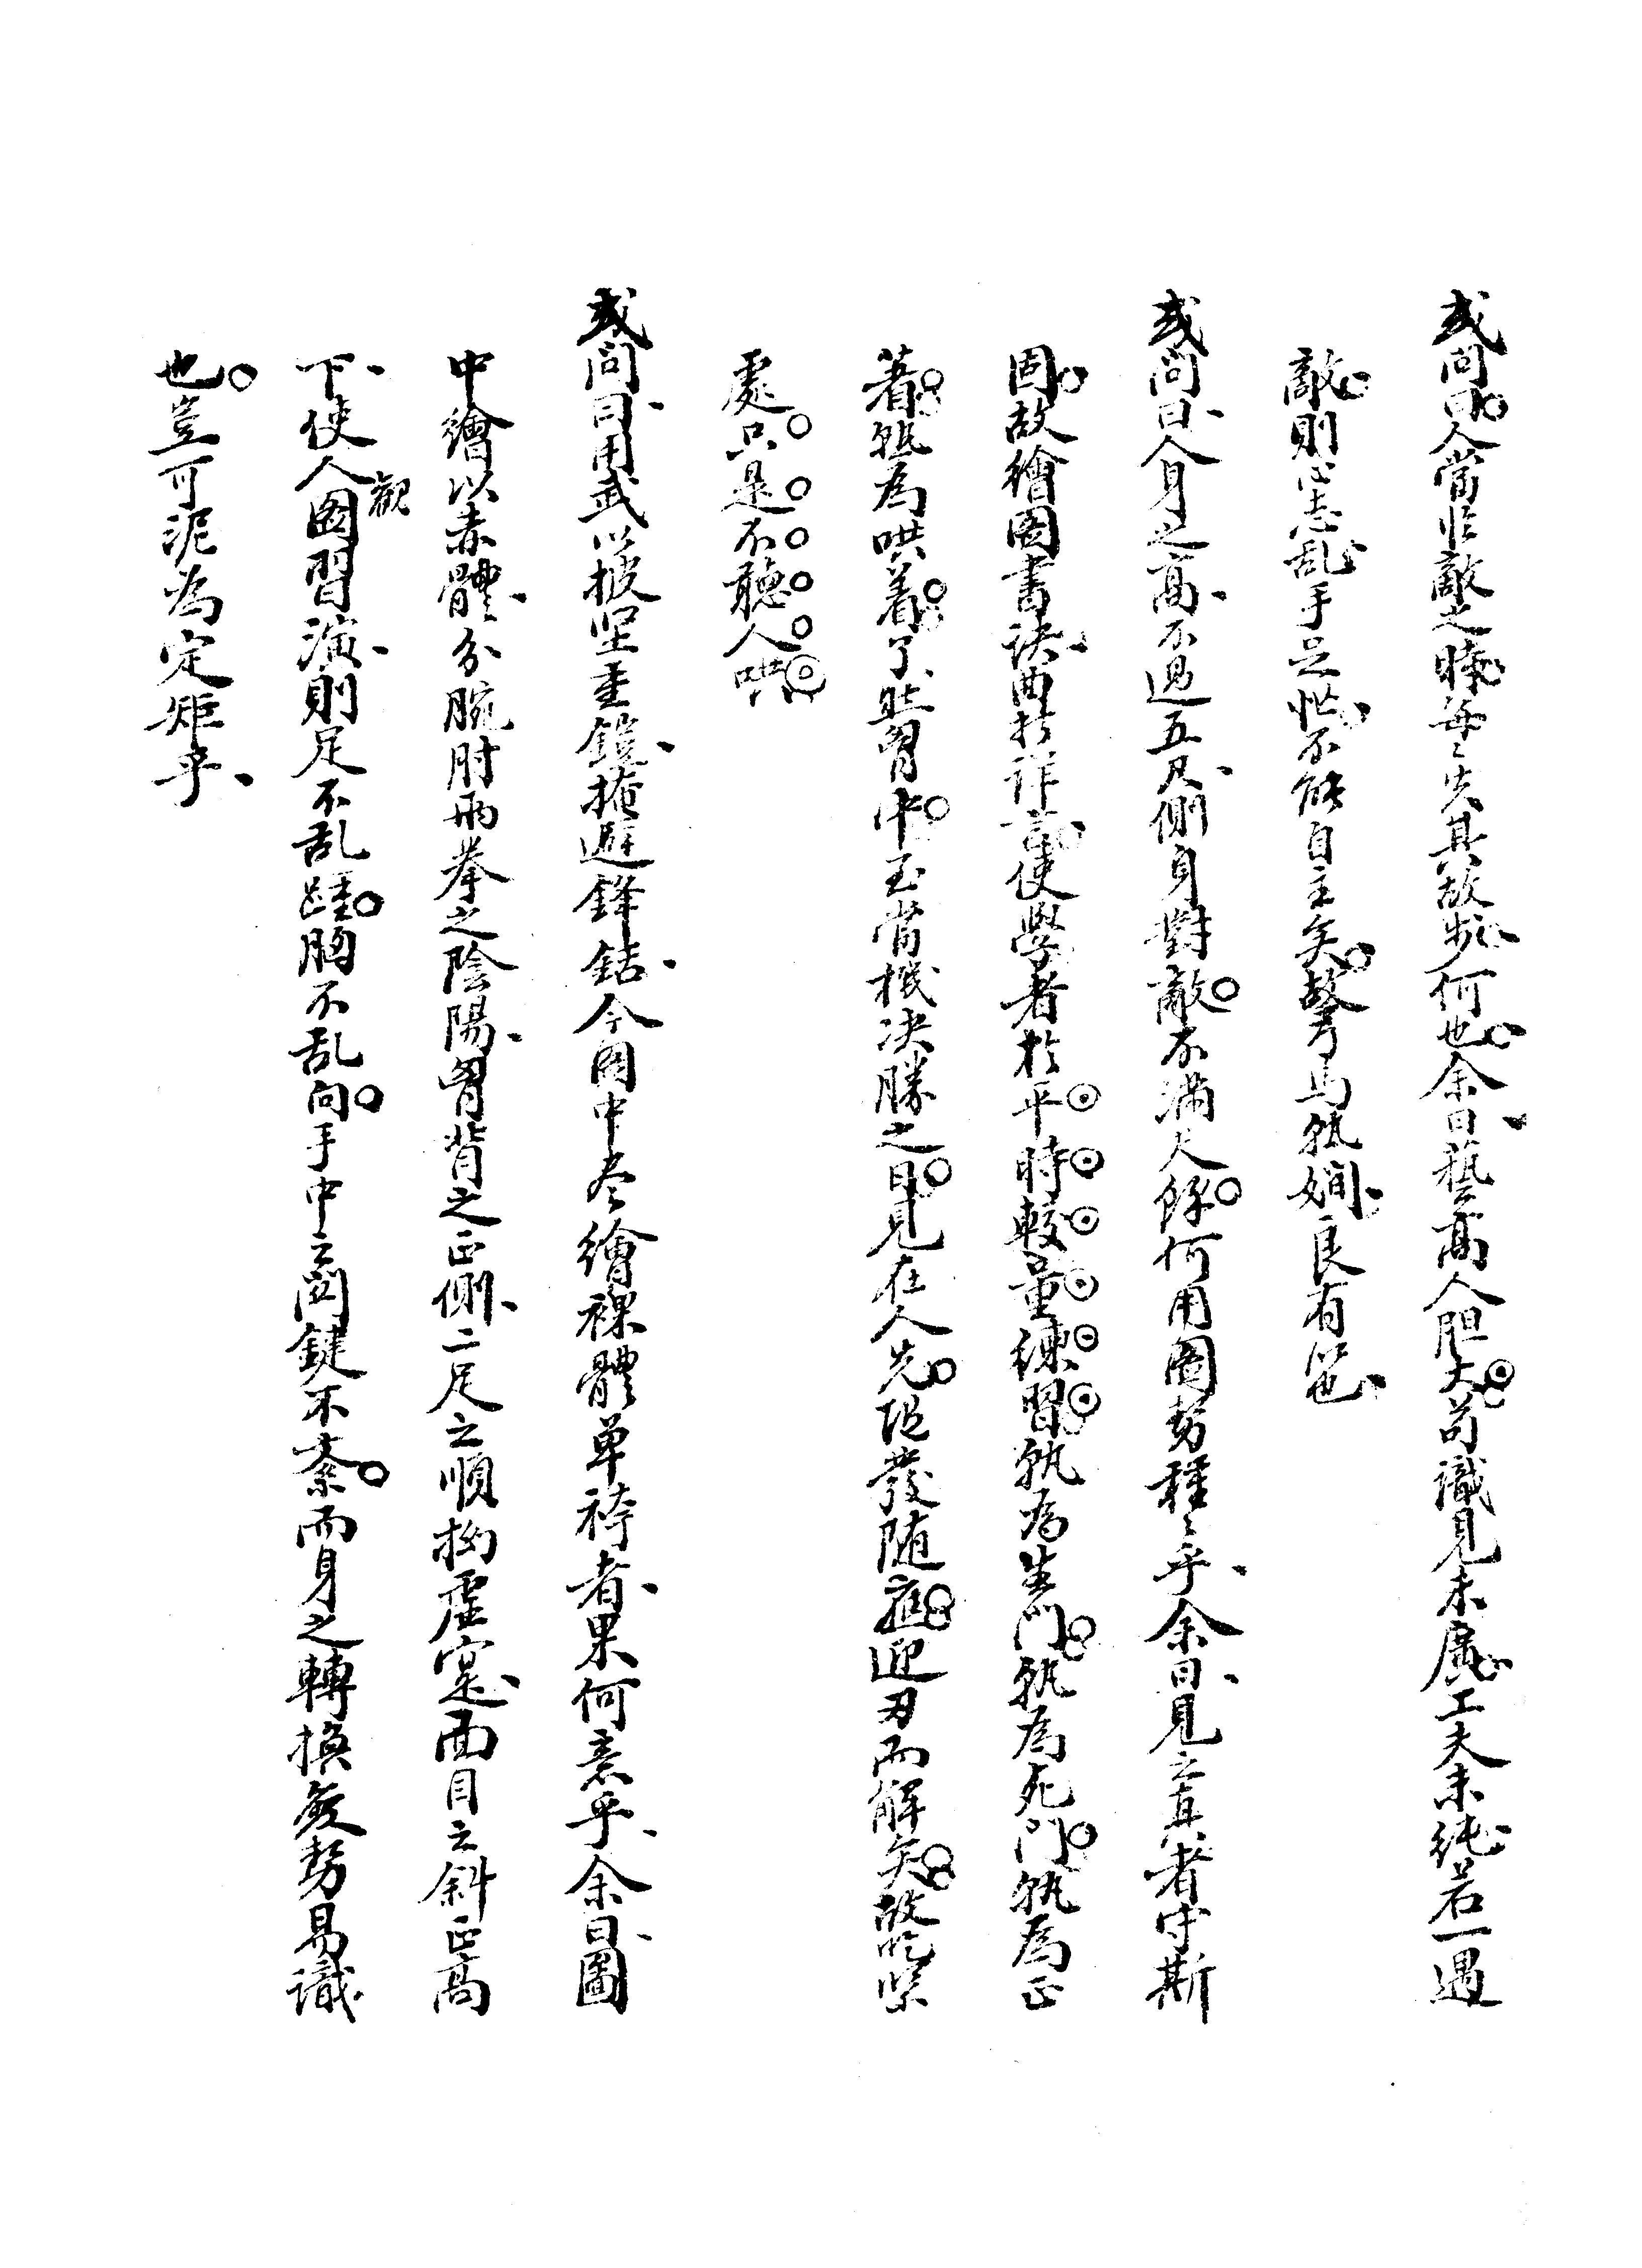 或問曰人當臨敵之時每々失其故步何也余曰藝高人胆大苟識見未廣工夫未純若一遇
敵則心志乱手足忙不能自主矣弩馬孰嫻良有以也
或問曰人身之高不過五尺側身對敵不滿尺餘何用圖势種々乎余曰見之真者守斯
固故繪圖書訣曲於詳言使學者於平時較量練習孰為生門孰為死門孰為正
著孰為哄着了然胷中至當機决勝之日見在人先随發随應迎刃而解矣故吃紧
處只是不聽人哄
或問曰用武以披坚重鎧掩避鋒銛今图中尽繪裸體单袴者果何意乎余曰圖
中繪以赤體分腕肘两拳之陰陽胷背之正側二足之順拗虚寔面目之斜正高
下使人觀圖習演則足不乱踄胸不乱向手中之関鍵不紊而身之轉換變势易識
也豈可泥為定矩乎